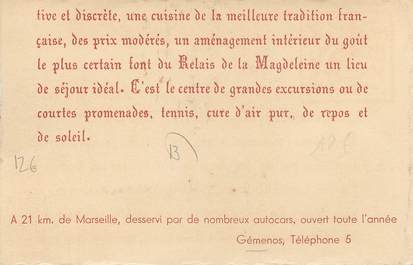 tive et discrète, une cuisine de la meilleure tradition fran-
çaise, des prix modérés, un aménagement intérieur du goût
le plus certain font du Relais de la Magdeleine un lieu
de séjour idéal. C'est le centre de grandes excursions ou de
courtes promenades, tennis, cure d'air pur, de repos et
de soleil.
12€
13
A 21 km. de Marseille, desservi par de nombreux autocars, ouvert toute l'année
Gémenos, Téléphone 5